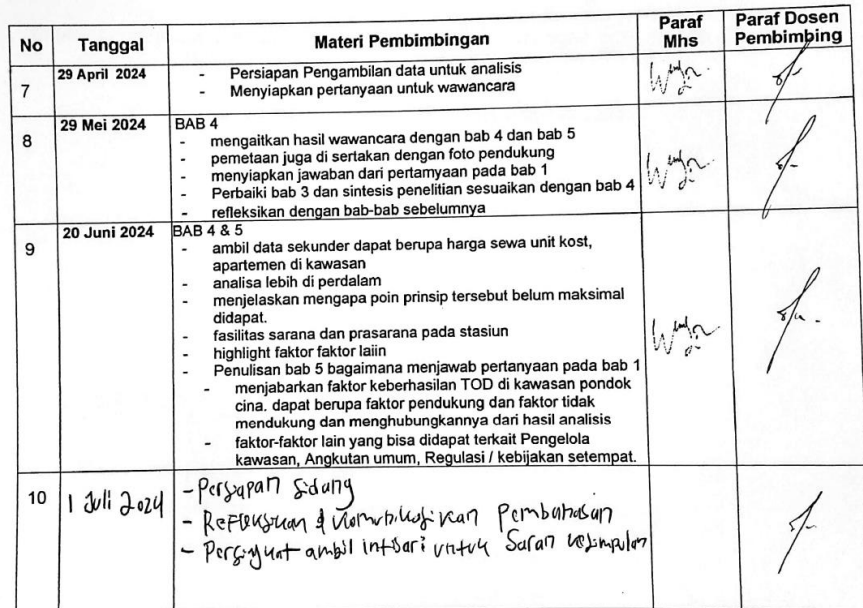 No Tanggal Materi Pembimbingan Paraf Mhs Paraf Dosen Pembimbing
7 29 April 2024 - Persiapan Pengambilan data untuk analisis
- Menyiapkan pertanyaan untuk wawancara
8 29 Mei 2024 BAB 4
- mengaitkan hasil wawancara dengan bab 4 dan bab 5
- pemetaan juga di sertakan dengan foto pendukung
- menyiapkan jawaban dari pertamyaan pada bab 1
- Perbaiki bab 3 dan sintesis penelitian sesuaikan dengan bab 4
- refleksikan dengan bab-bab sebelumnya
9 20 Juni 2024 BAB 4 & 5
- ambil data sekunder dapat berupa harga sewa unit kost,
apartemen di kawasan
- analisa lebih di perdalam
- menjelaskan mengapa poin prinsip tersebut belum maksimal
didapat.
- fasilitas sarana dan prasarana pada stasiun
- highlight faktor faktor laiin
- Penulisan bab 5 bagaimana menjawab pertanyaan pada bab 1
- menjabarkan faktor keberhasilan TOD di kawasan pondok
cina. dapat berupa faktor pendukung dan faktor tidak
mendukung dan menghubungkannya dari hasil analisis
- faktor-faktor lain yang bisa didapat terkait Pengelola
kawasan, Angkutan umum, Regulasi / kebijakan setempat.
10 1 Juli 2024 - Persiapan Sidang
- Pembahasan
- ambil intisari untuk Saran kesimpulan